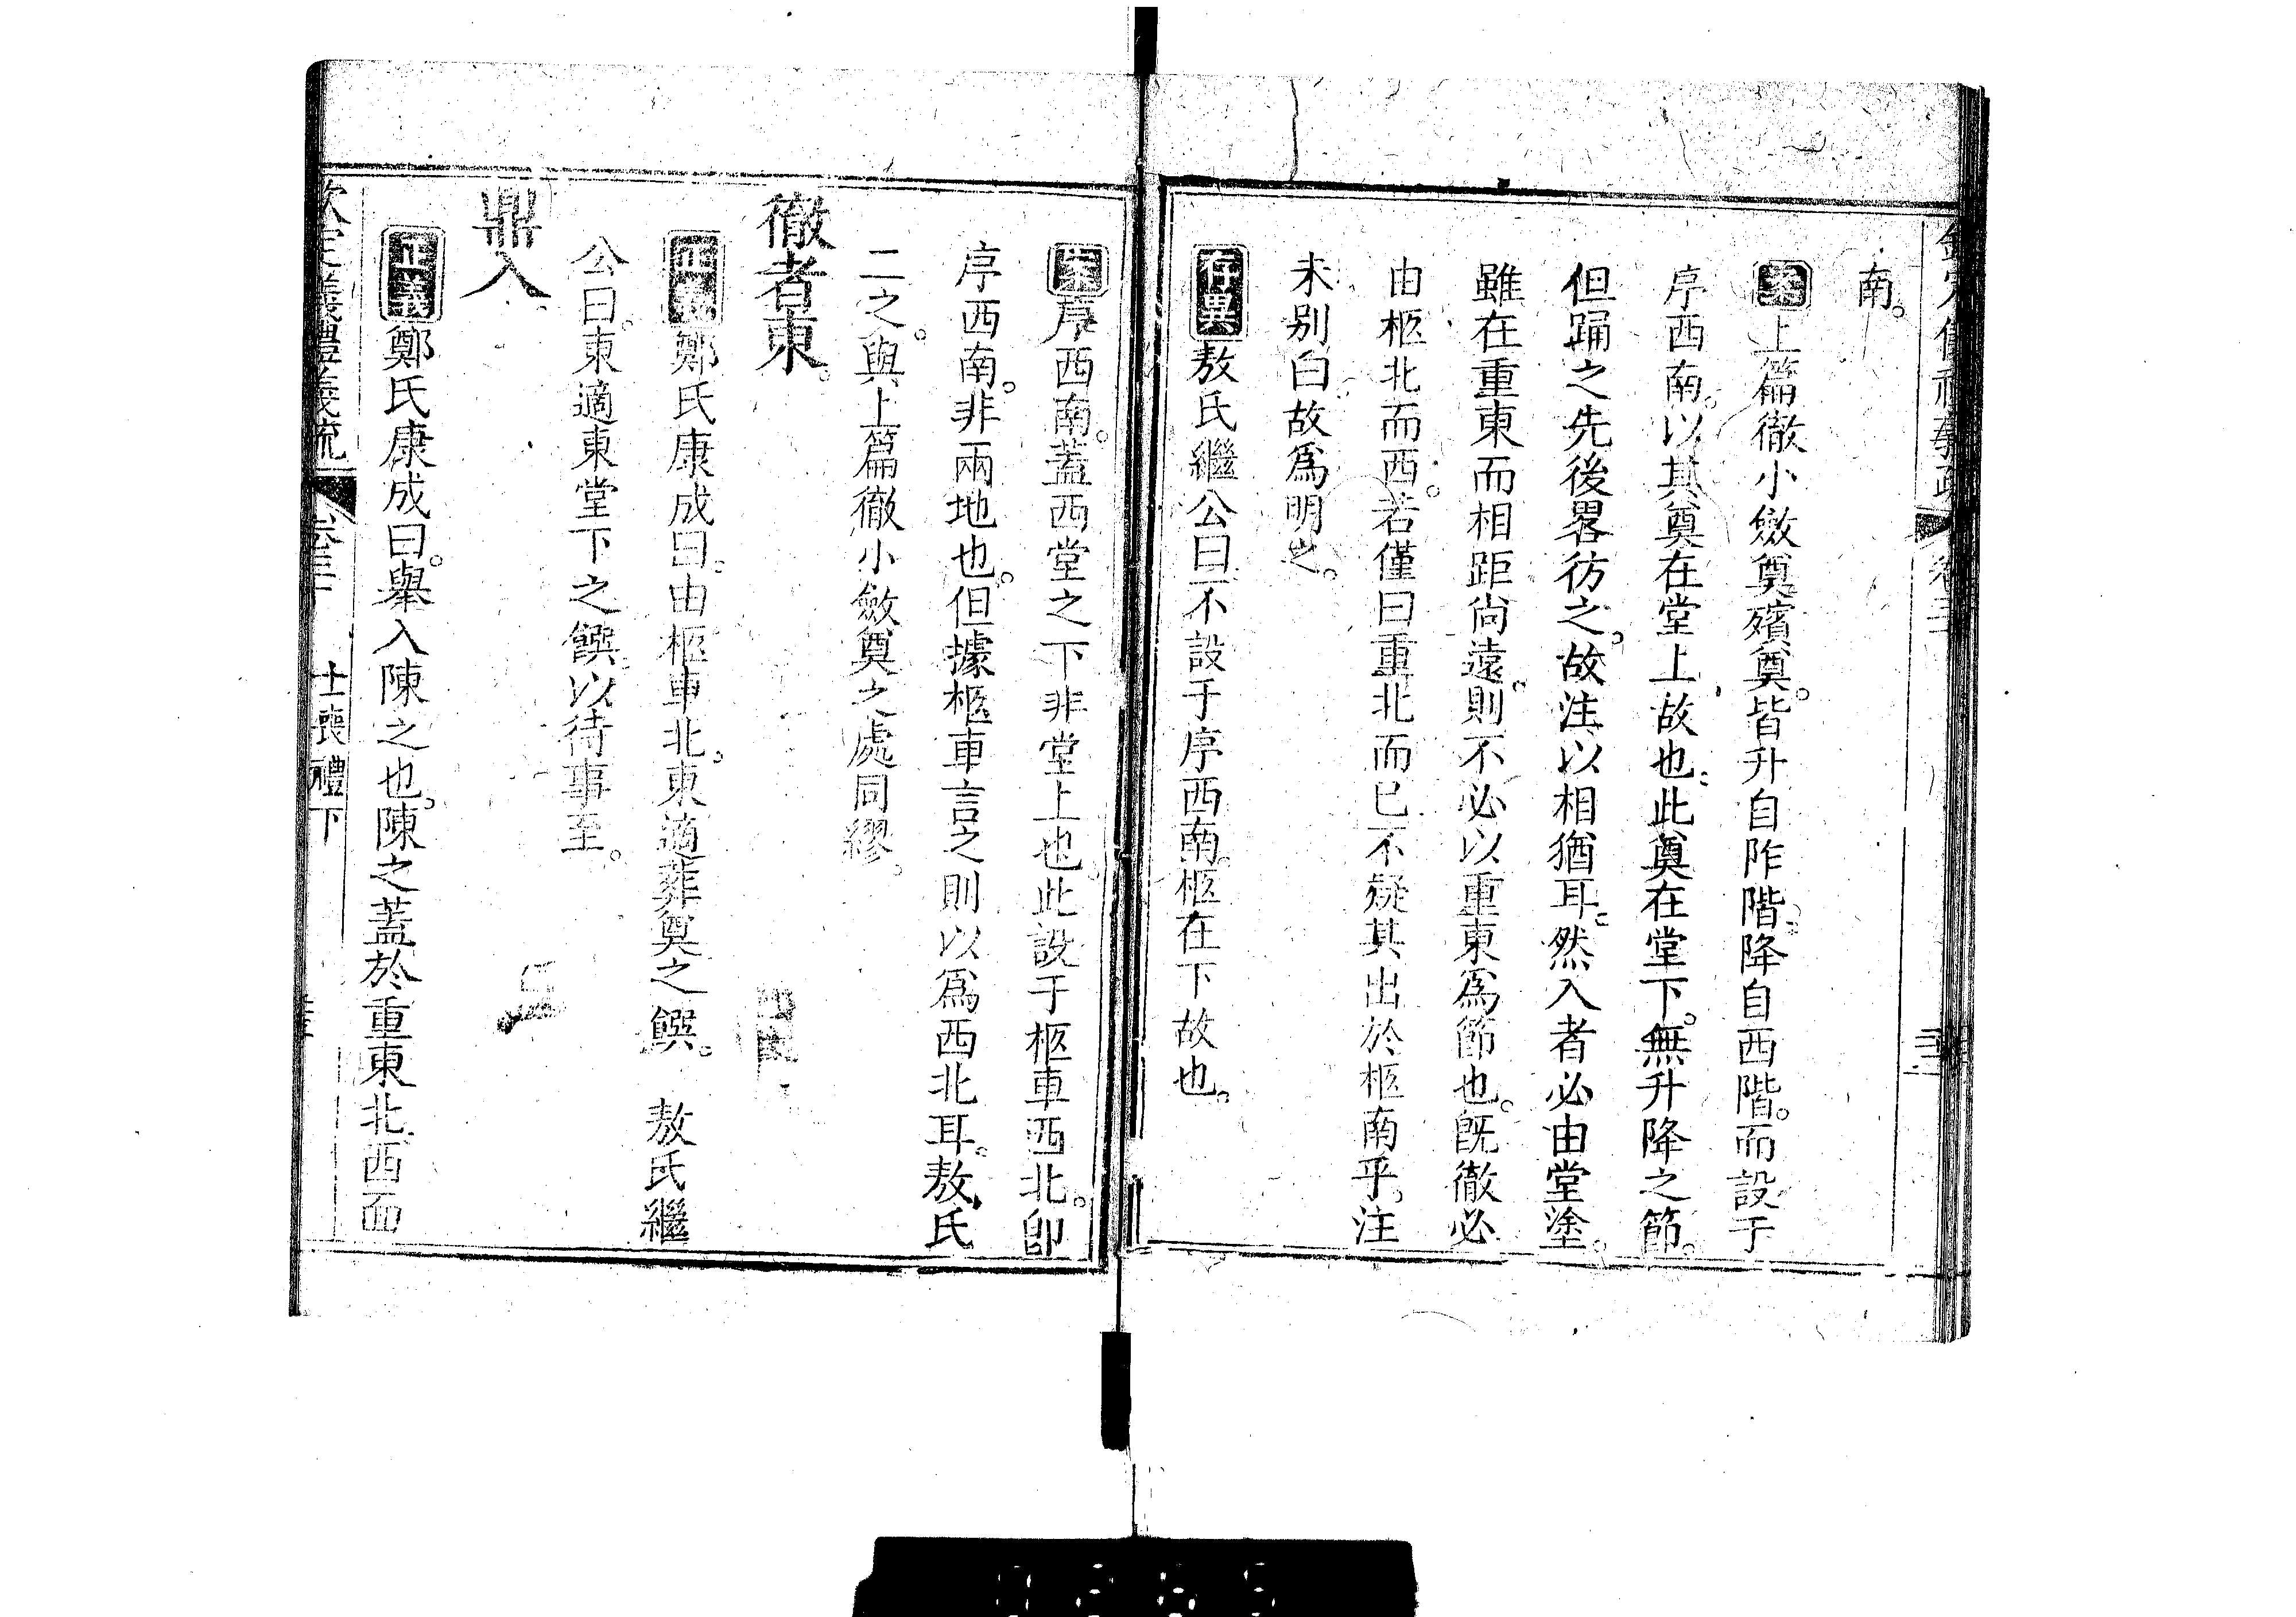 南。
案上篇徹小斂奠殯奠。皆升自阼階。降自西階。而設于
序西南。以其奠在堂上故也。此奠在堂下。無升降之節。
但踊之先後畧彷之。故注以相猶耳。然入者必由堂塗。
雖在重東而相距尚遠。則不必以重東爲節也。既徹必
由柩北而西。若僅曰重北而已不疑其出於柩南乎。注
未别白。故爲明之。
存異敖氏繼公曰不設于序西南。柩在下故也。
案序西南。蓋西堂之下非堂上也。此設于柩車西北。卽
序西南。非兩地也。但據柩車言之則以爲西北耳。敖氏
二之。與上篇徹小斂奠之處同繆。
徹者東。
正義鄭氏康成曰。由柩車北。東適葬奠之饌。 敖氏繼
公曰。東適東堂下之饌。以待事至。
鼎入
正義鄭氏康成曰。舉入陳之也。陳之蓋於重東北西面
欽定儀禮義疏 卷三十 士喪禮下